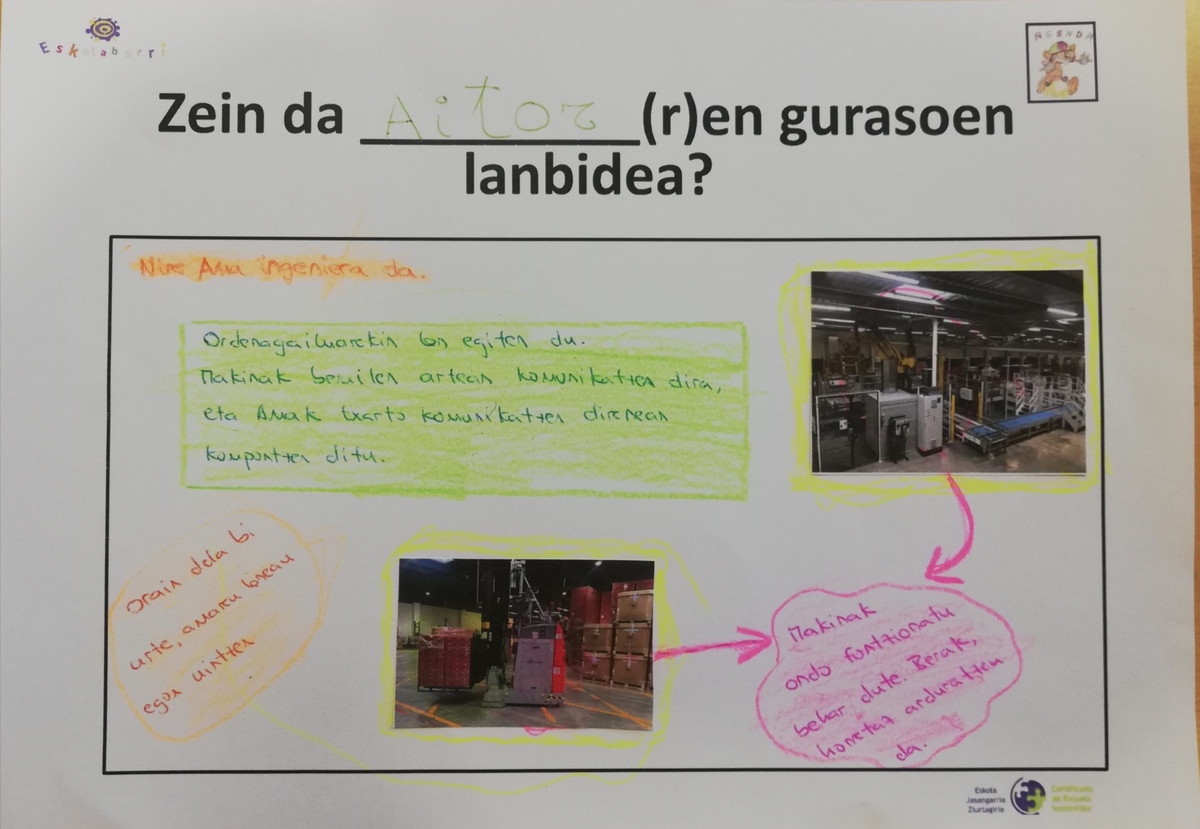 Eskolaberri
AGENDA
Zein da Aitor (r)en gurasoen
lanbidea?
Nire Ama ingeniera da.
Ordenagailuarekin lan egiten du.
Makinak beraien artean komunikatzen dira,
eta Amak txarto komunikatzen direnean
konpontzen ditu.
Orain dela bi
urte, amarekin lanean
egon nintzen
Makinak
ondo funtzionatu
behar dute. Berak,
horretaz arduratzen
da.
Eskola
Jasangarria
Ziurtagiria
Certificado
de Escuela
Sostenible